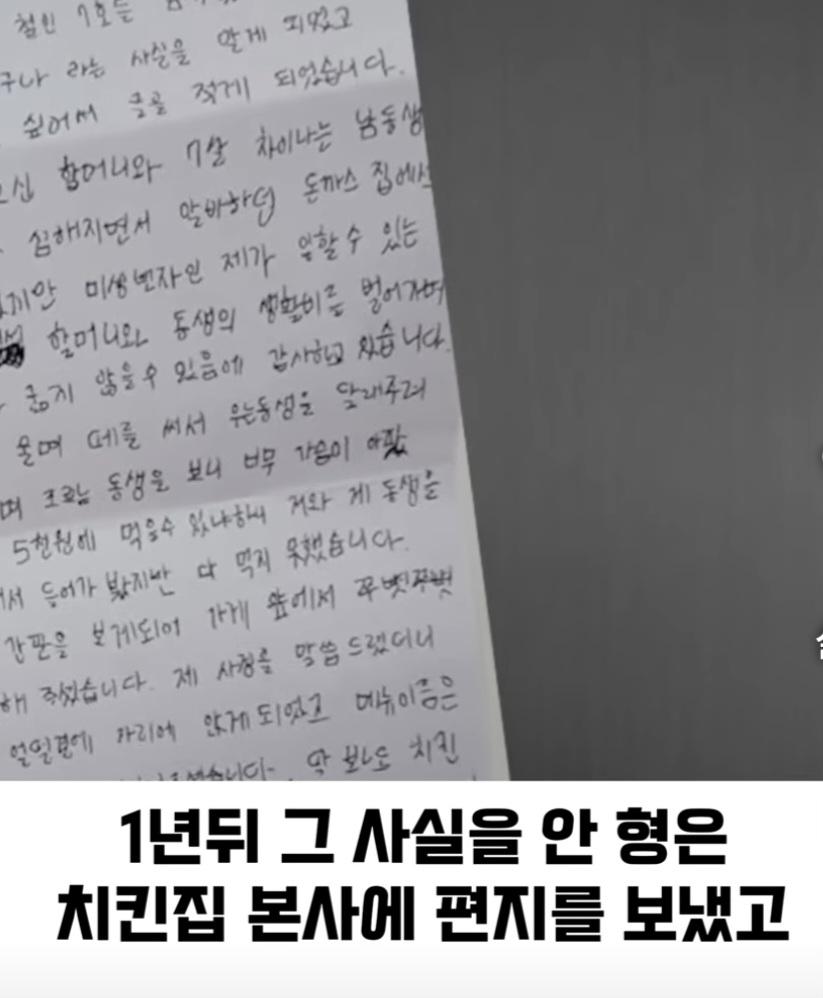 철인 7호를
구나 라는 사실을 알게 되었고
싶어서 글을 적게 되었습니다.
할머니와 7살 차이나는 남동생
심해지면서 알바하던 돈까스 집에서
미성년자인 제가 일할수 있는
할머니와 동생의 생활비를 벌어가며
굶지 않을수 있음에 감사하고 있습니다.
울며 떼를 써서 우는동생을 달래주려
조르는 동생을 보니 너무 가슴이 아팠
5천원에 먹을수 있냐하니 저와 제 동생을
들어가 봤지만 다 먹지 못했습니다.
간판을 보게되어 가게 앞에서 쭈뼛쭈뼛
해 주셨습니다. 제 사정을 말씀 드렸더니
얼떨결에 자리에 앉게되었고 메뉴이름은
딱 봐도 치킨
1년뒤 그 사실을 안 형은
치킨집 본사에 편지를 보냈고